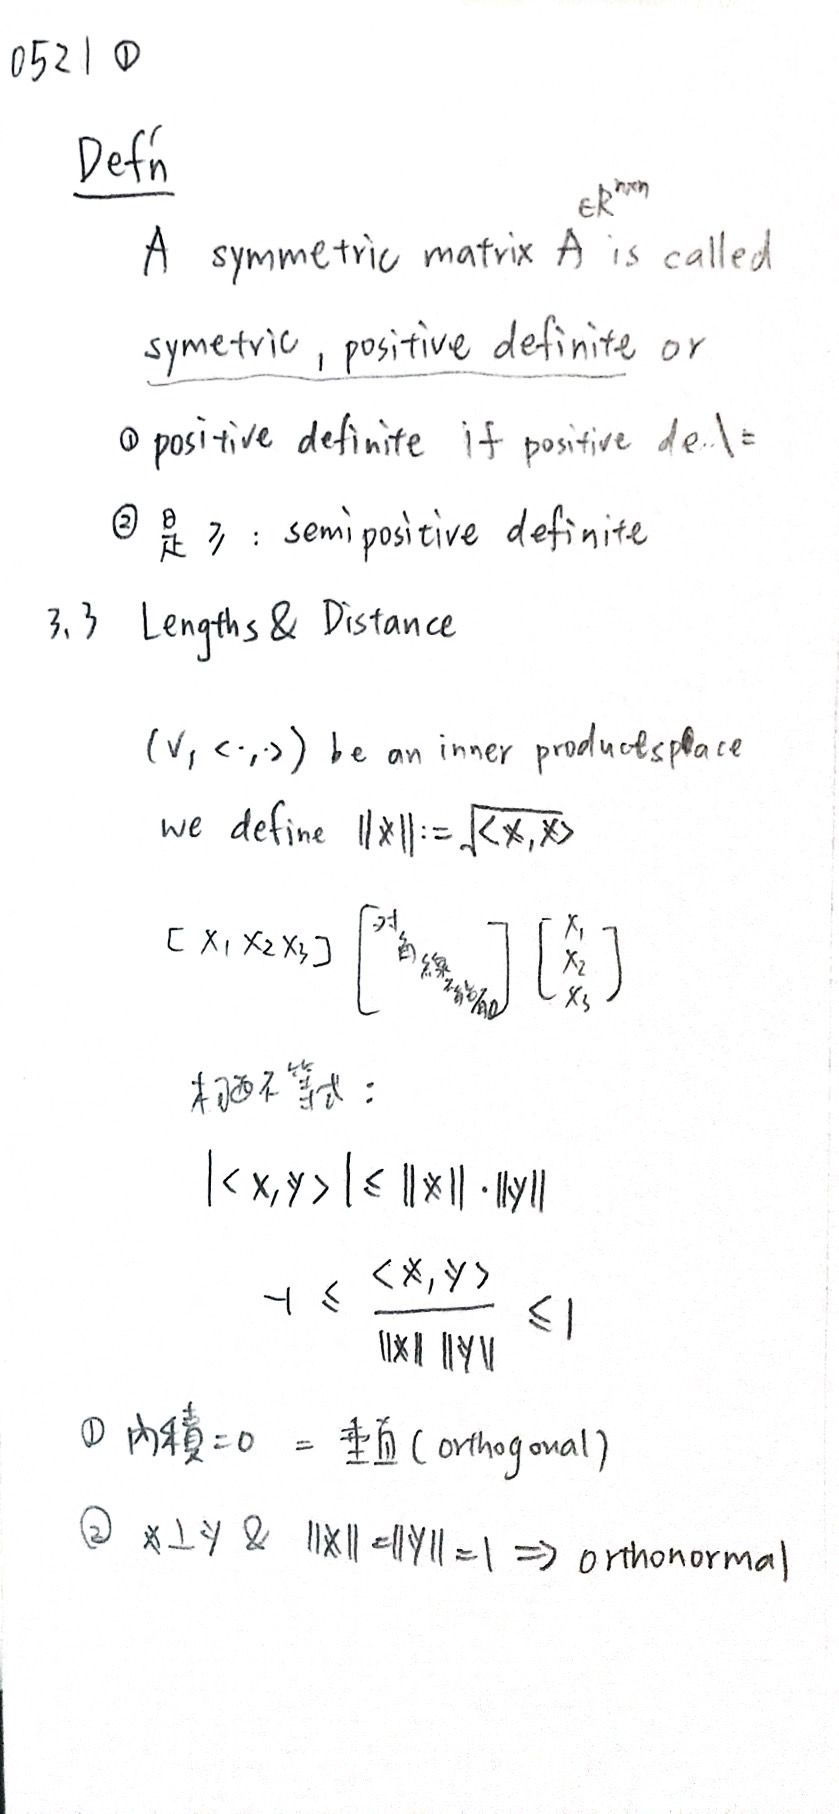 0521 ①
Def'n
∈R^{n×n}
A symmetric matrix A is called
symetric, positive definite or
① positive definite if positive
② 是 ≥ : semipositive definite
3.3 Lengths & Distance
(V, <·,·>) be an inner product splace
we define ||x|| := √<x,x>
[x₁ x₂ x₃] [對角線不能有0] [x₁ x₂ x₃]
柯西不等式:
|<x,y>| ≤ ||x||·||y||
-1 ≤ <x,y> / ||x|| ||y|| ≤ 1
① 內積=0 = 垂直 (orthogonal)
② x⊥y & ||x||=||y||=1 ⇒ orthonormal